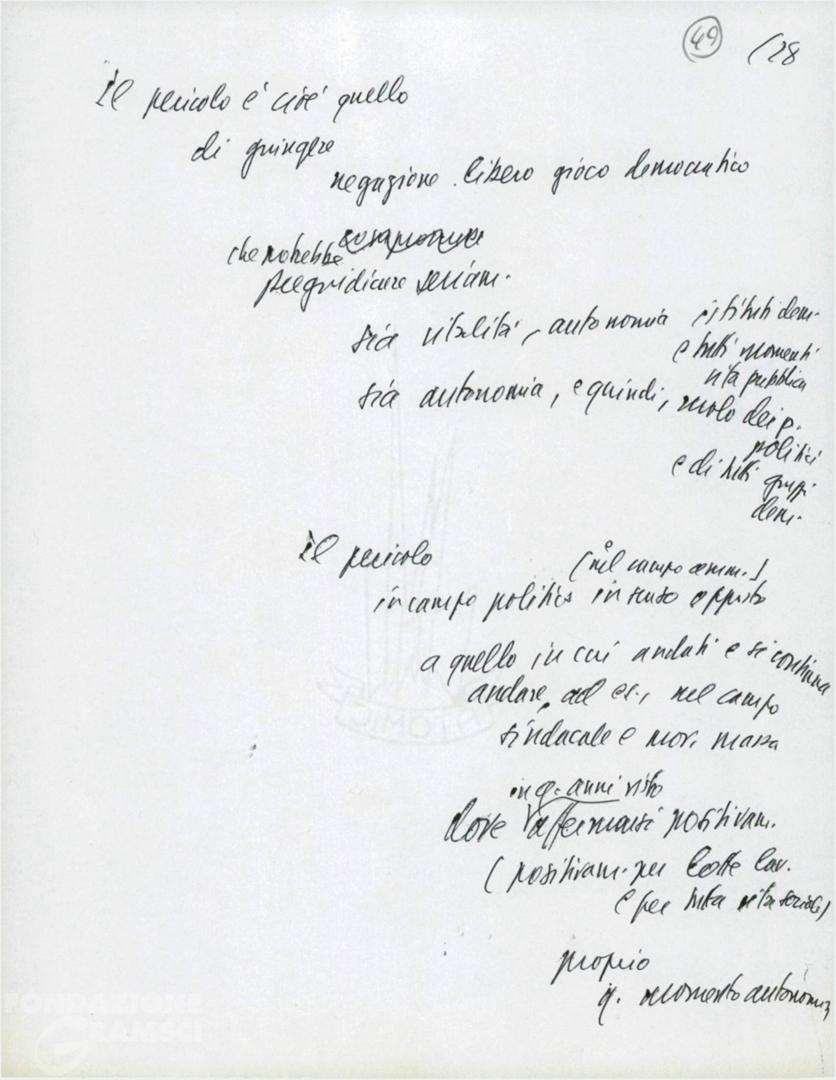 49
/28
Il pericolo è cioè quello
di giungere
negazione libero gioco democratico
che potrebbe
pregiudicare seriam.
sia vitalità, autonomia istituti dem.
e tutti momenti
vita pubblica
sia autonomia, e quindi, ruolo dei p.
politici
e di tutti gruppi
dem.
Il pericolo
(nel campo amm.)
in campo politico in senso opposto
a quello in cui andati e si continua
andare, ad es., nel campo
sindacale e mov. massa
in q. anni visto
dove affermarsi positivam.
(positivam. per lotte lav.
e per tutta vita sociale)
proprio
q. momento autonomia
ATOMIC
FONDAZIONE
GRAMSCI